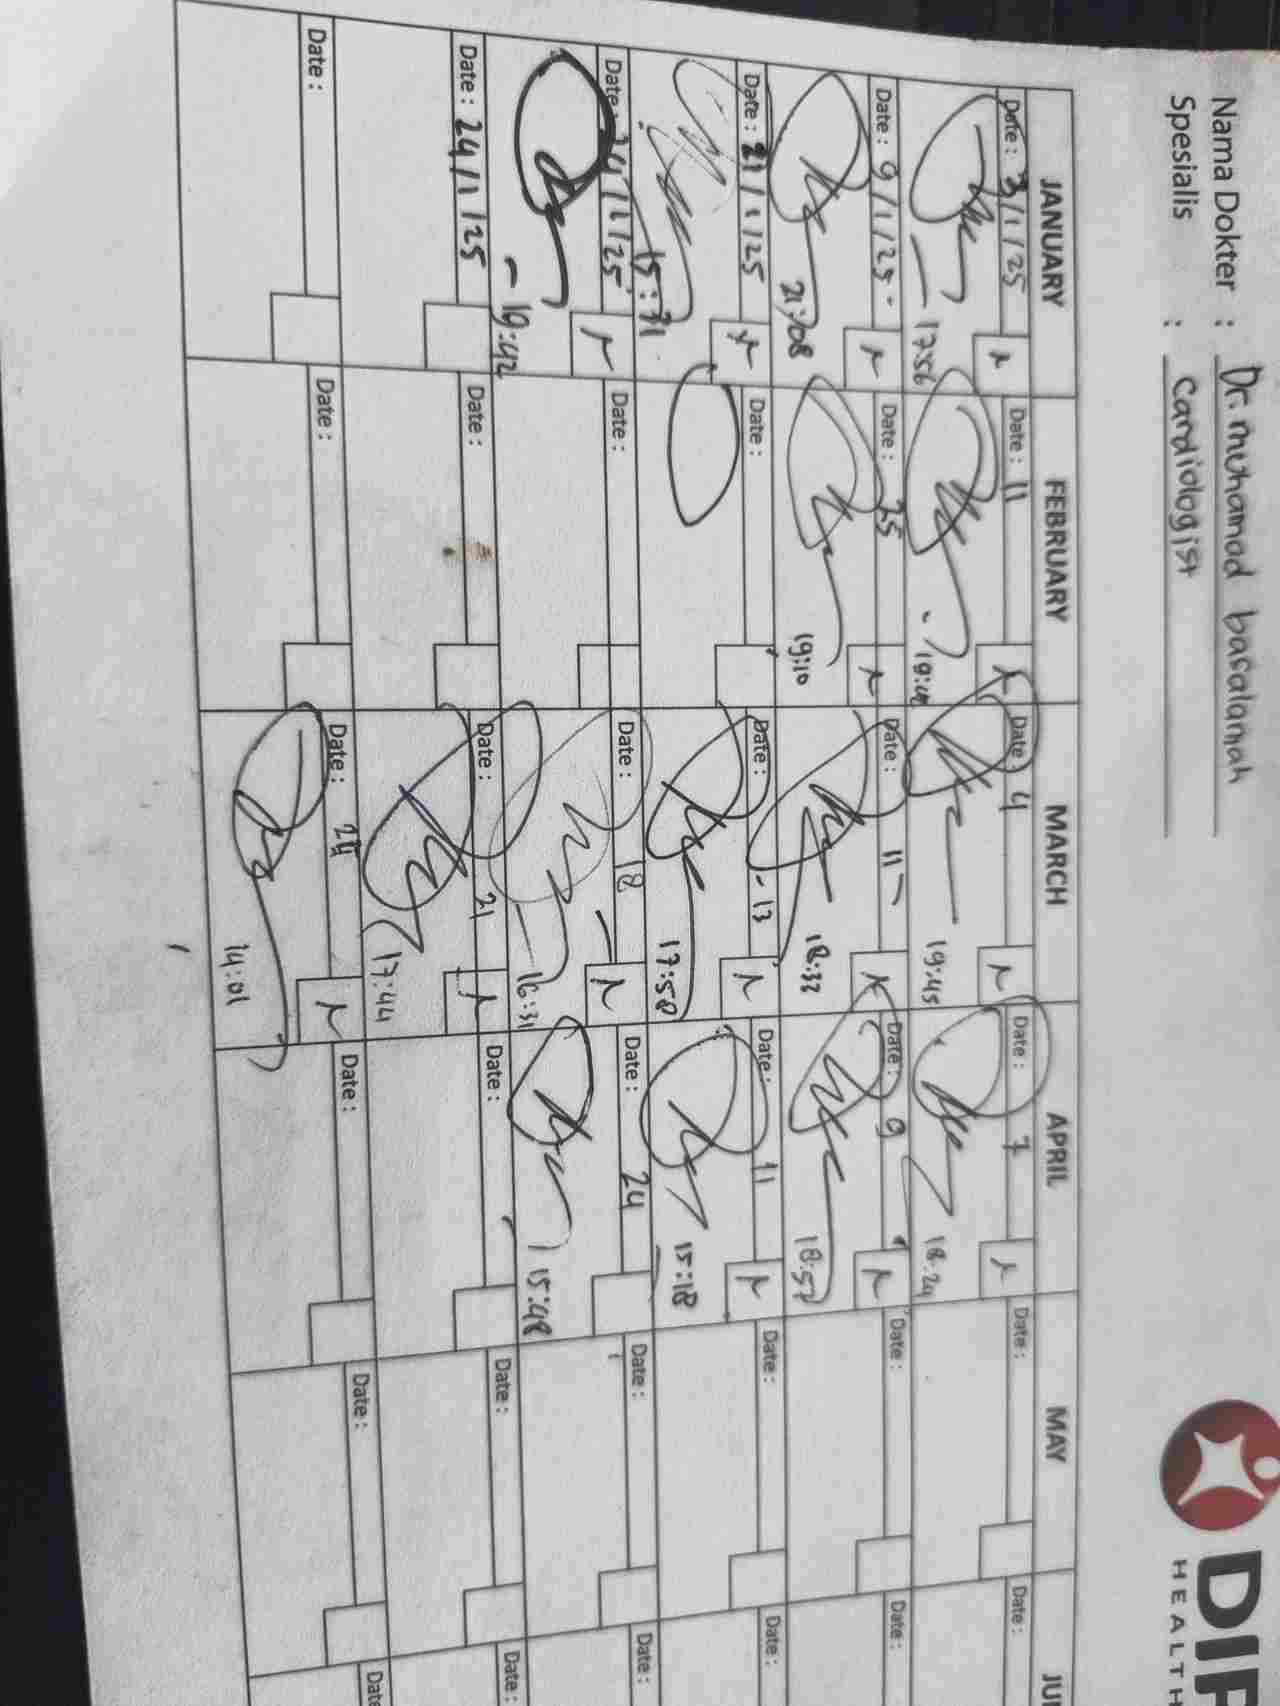 Nama Dokter : Dr. muhamad basalamah
Spesialis : Cardiologist
HEALTH
JANUARY FEBRUARY MARCH APRIL MAY
Date : 3/1/25 Date : 11 Date : 4 Date : 7 Date : Date :
17:56 19:45 18.24
Date : 9/1/25 Date : 25 Date : 11 Date : 9 Date : Date :
21:08 19:10 18:32 18:57
Date : 21/1/25 Date : Date : 13 Date : 11 Date : Date :
15:31 17:58 15:18
Date : 24/1/25 Date : Date : 18 Date : 24 Date : Date :
19:42 16:31 15:48
Date : 24/1/25 Date : Date : 21 Date : Date : Date :
17:44
Date : Date : Date : 24 Date : Date : Date
14:01